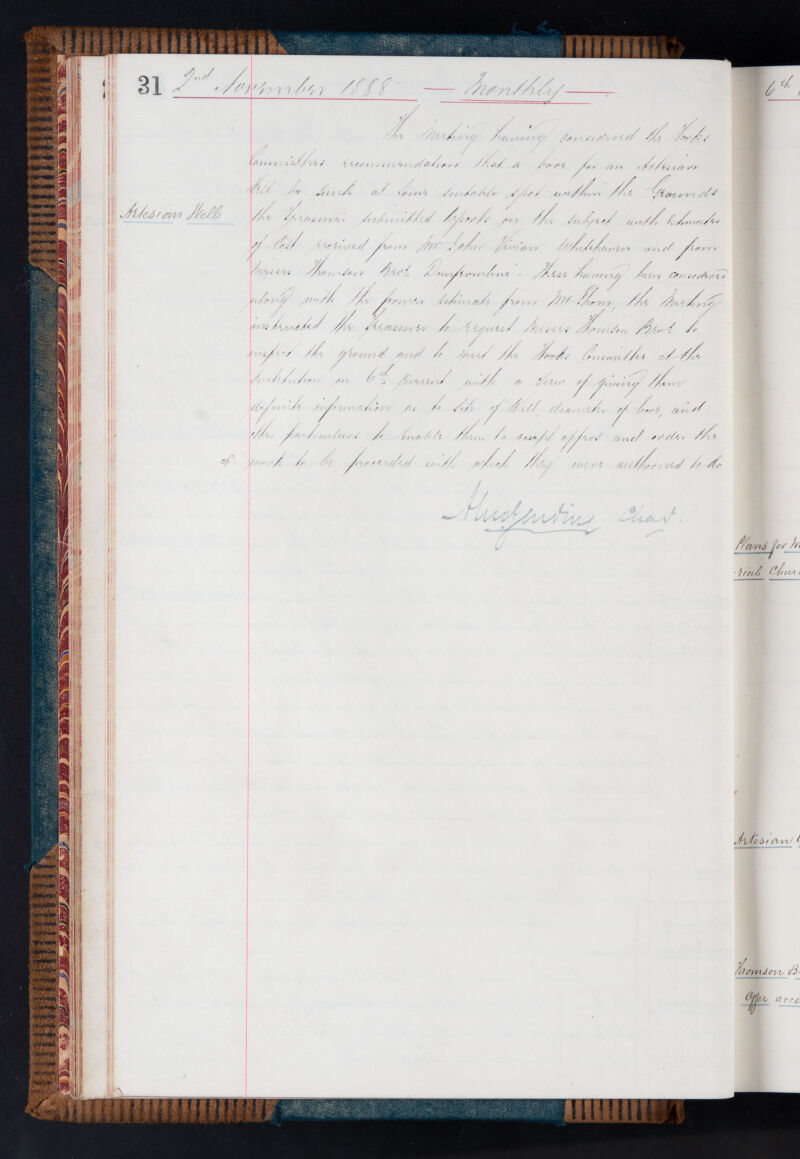 31 2nd November 1888 — Monthly —
The Meeting having considered the Works
Committees recommendation that a bore for an Artesian
Well be sunk at some suitable spot within the Grounds
Artesian Well
the Treasurer submitted Reports on the subject with Estimates
of Cost received from Mr John Vivian Whitehaven and from
Messrs Thomson Bros Dunfermline - These having been considered
along with the former estimate from Mr Thom, the Meeting
instructed the Treasurer to request Messrs Thomson Bros to
inspect the ground and to meet the Works Committee at the
Institution on 6th Current with a view of giving them
definite information as to Site of Well, diameter of bore, and
other particulars to enable them to accept offers and order the
work to be proceeded with which they were authorised to do
6th
Plans for M
-rial Chur
Artesian
Thomson B
Offer acce